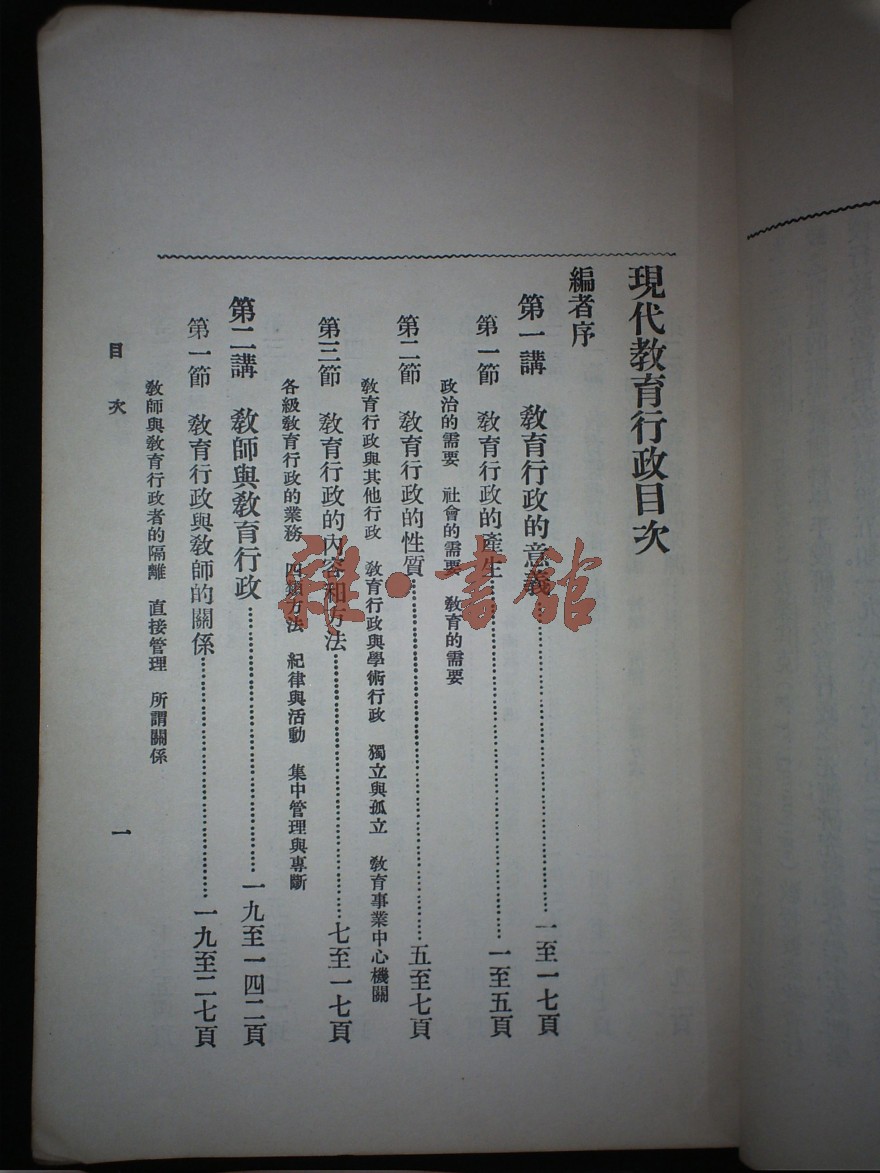 現代教育行政目次
編者序
第一講 教育行政的意義 一至一七頁
第一節 教育行政的產生 一至五頁
政治的需要 社會的需要 教育的需要
第二節 教育行政的性質 五至七頁
教育行政與其他行政 教育行政與學術行政 獨立與孤立 教育事業中心機關
第三節 教育行政的內容和方法 七至一七頁
各級教育行政的業務 四類方法 紀律與活動 集中管理與專斷
第二講 教師與教育行政 一九至一四二頁
第一節 教育行政與教師的關係 一九至二七頁
教師與教育行政者的隔離 直接管理 所謂關係
目次 一
雜·書館